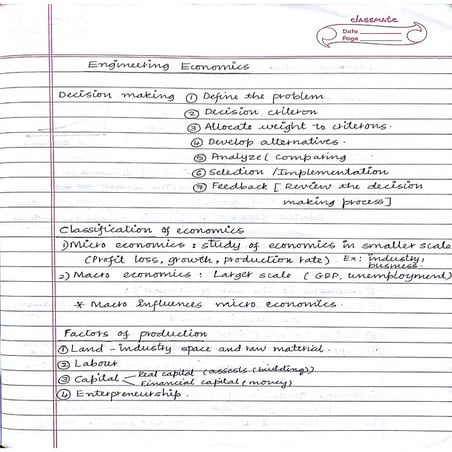 classmate
Date
Page
Engineering Economics
Decision making ① Define the problem
② Decision criteron
③ Allocate weight to criterons.
④ Develop alternatives.
⑤ Analyze ( comparing
⑥ Selection / Implementation
⑦ Feedback [ Review the decision
making process]
Classification of economics
1) Micro economics : study of economics in smaller scale
(Profit loss, growth, production rate) Ex: industry,
business.
2) Macro economics : Larger scale ( GDP, unemployment)
* Macro influences micro economics.
Factors of production
① Land - industry space and raw material.
② Labour
③ Capital Real capital (assests (building))
Financial capital (money)
④ Enterpreneurship.